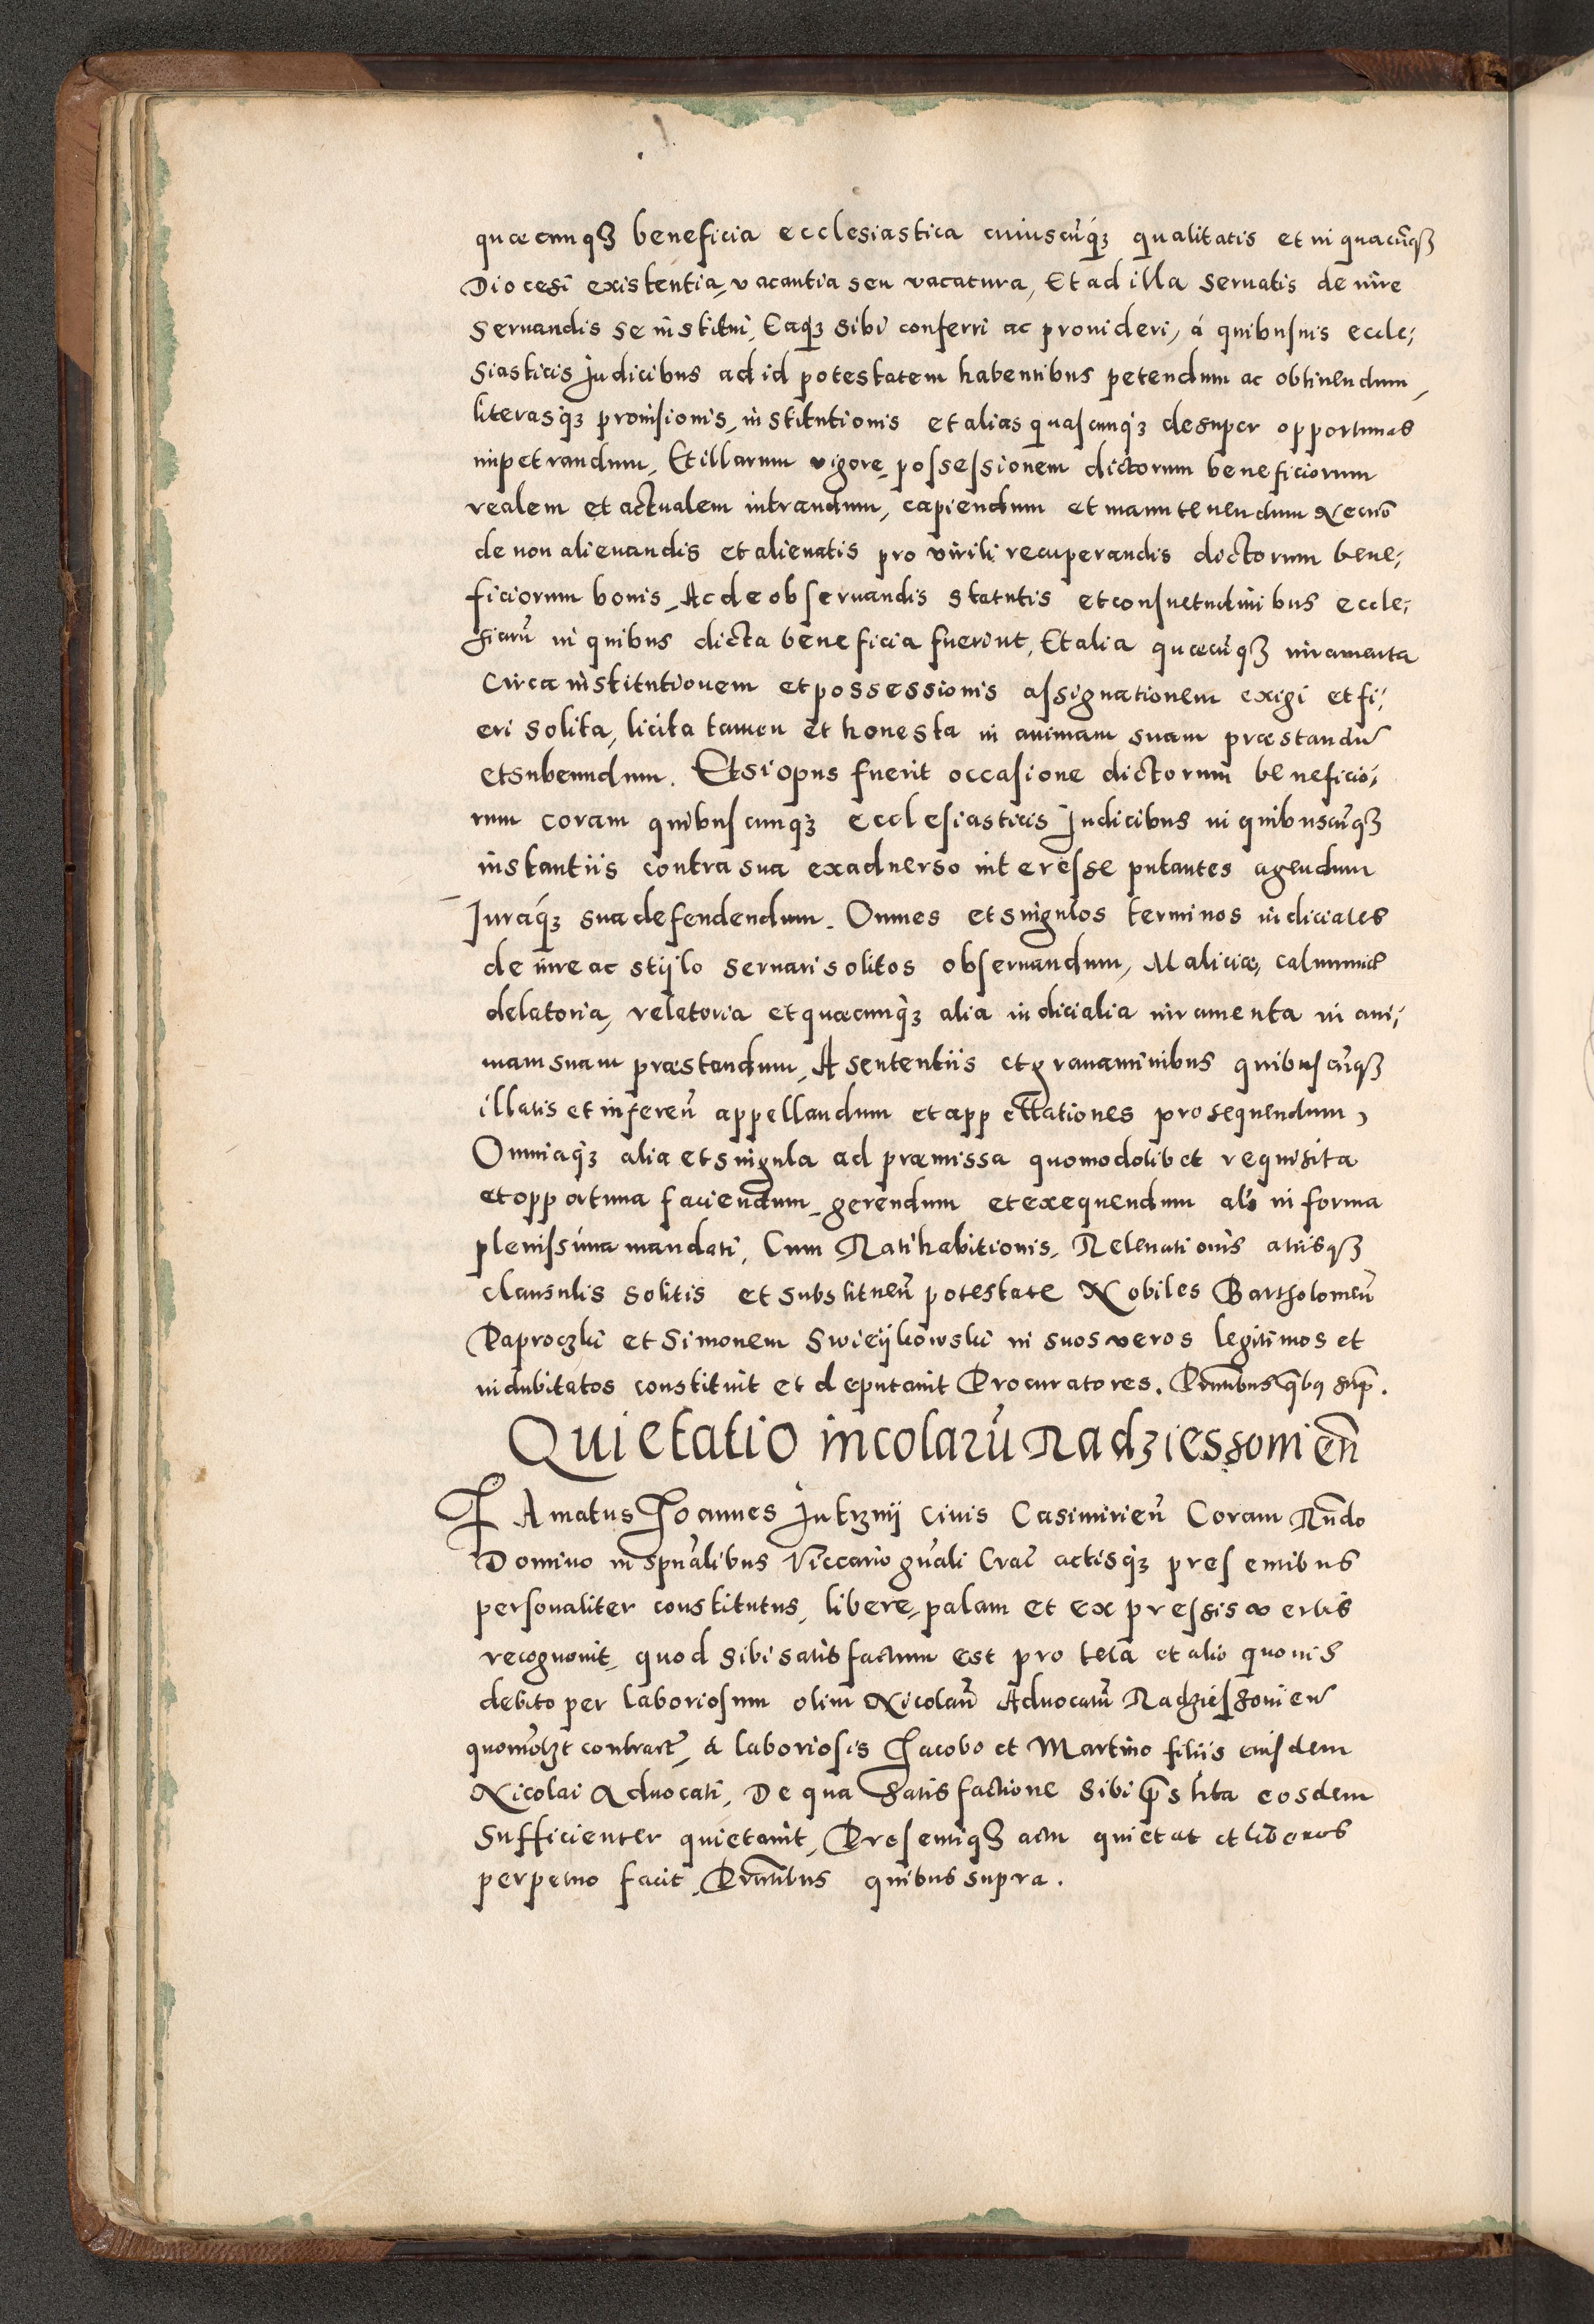 quæcunq3 beneficia ecclesiastica cuiuscūq3 qualitatis et in quacūq3
Diocesi existentia, vacantia seu vacatura, Et ad illa seruatis de iure
seruandis se institui, Eaq3 sibi conferri ac prouideri, á quibusuis eccle;
siasticis Judicibus ad id potestatem habentibus petendum ac obtinendum,
literasq3 prouisionis, institutionis et alias quascunq3 desuper opportunas
impetrandum, Et illarum vigore, possessionem dictorum beneficiorum
realem et actualem intrandum, capiendum et manutenendum Necnō
de non alienandis et alienatis pro virili recuperandis dictorum bene;
ficiorum bonis, Ac de obseruandis statutis et consuetudinibus eccle;
siarū in quibus dicta beneficia fuerint, Et alia quæcūq3 iuramenta
circa institutionem et possessionis assignationem exigi et fi;
eri solita, licita tamen et honesta in animam suam præstandū
et subeundum. Et si opus fuerit occasione dictorum beneficio;
rum coram quibuscunq3 ecclesiasticis Judicibus in quibuscūq3
instantiis contra sua ex aduerso interesse putantes agendum
Juraq3 sua defendendum. Omnes et singulos terminos iudiciales
de iure ac stijlo seruari solitos obseruandum, Maliciæ, calumniæ
delatoria, relatoria et quæcunq3 alia iudicialia iuramenta in ani;
mam suam præstandum, A sententiis et grauaminibus quibuscūq3
illatis et inferen̄ appellandum et appellationes prosequendum,
Omniaq3 alia et singula ad præmissa quomodolibet requisita
et opportuna faciendum, gerendum et exequendum als in forma
plenissima mandati, Cum Ratihabitionis, Releuationis aliisq3
clausulis solitis et substituen̄ potestate Nobiles Bartholomeū
Paproczki et Simonem Swieijkowski in suos veros legitimos et
indubitatos constituit et deputauit Procuratores. Prn̄tibus q̄bꝯ sup̄.
Quietatio incolarū Radziessouien̄
Famatus Joannes Jutrznij ciuis Casimirien̄ Coram Rn̄do
Domino in spūalibus Viccario gn̄ali Crac̄ actisq3 presentibus
personaliter constitutus, libere, palam et expressis verbis
recognouit, quod sibi satisfactum est pro tela et alio quouis
debito per laboriosum olim Nicolaū Aduocatū Radziessouien̄
quomōlzt contract̄, á laboriosis Jacobo et Martino filiis eiusdem
Nicolai Aduocati, De qua satisfactione sibi p̄stita eosdem
sufficienter quietauit, Presentiq3 actu quietat et liberos
perpetuo facit, Prn̄tibus quibus supra.